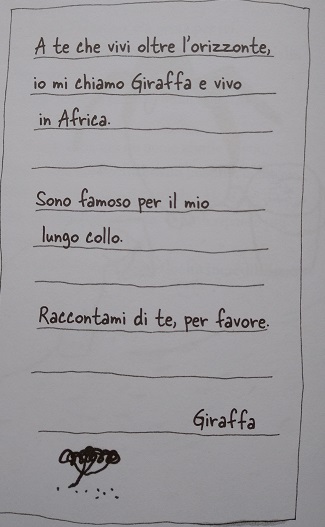 A te che vivi oltre l'orizzonte,
io mi chiamo Giraffa e vivo
in Africa.
Sono famoso per il mio
lungo collo.
Raccontami di te, per favore.
Giraffa